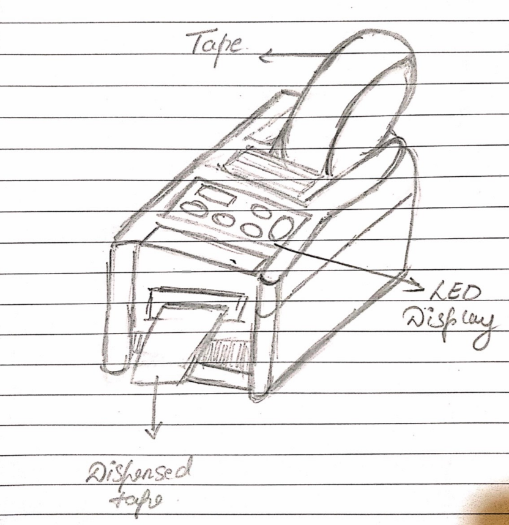 Tape
LED
Display
Dispensed
tape